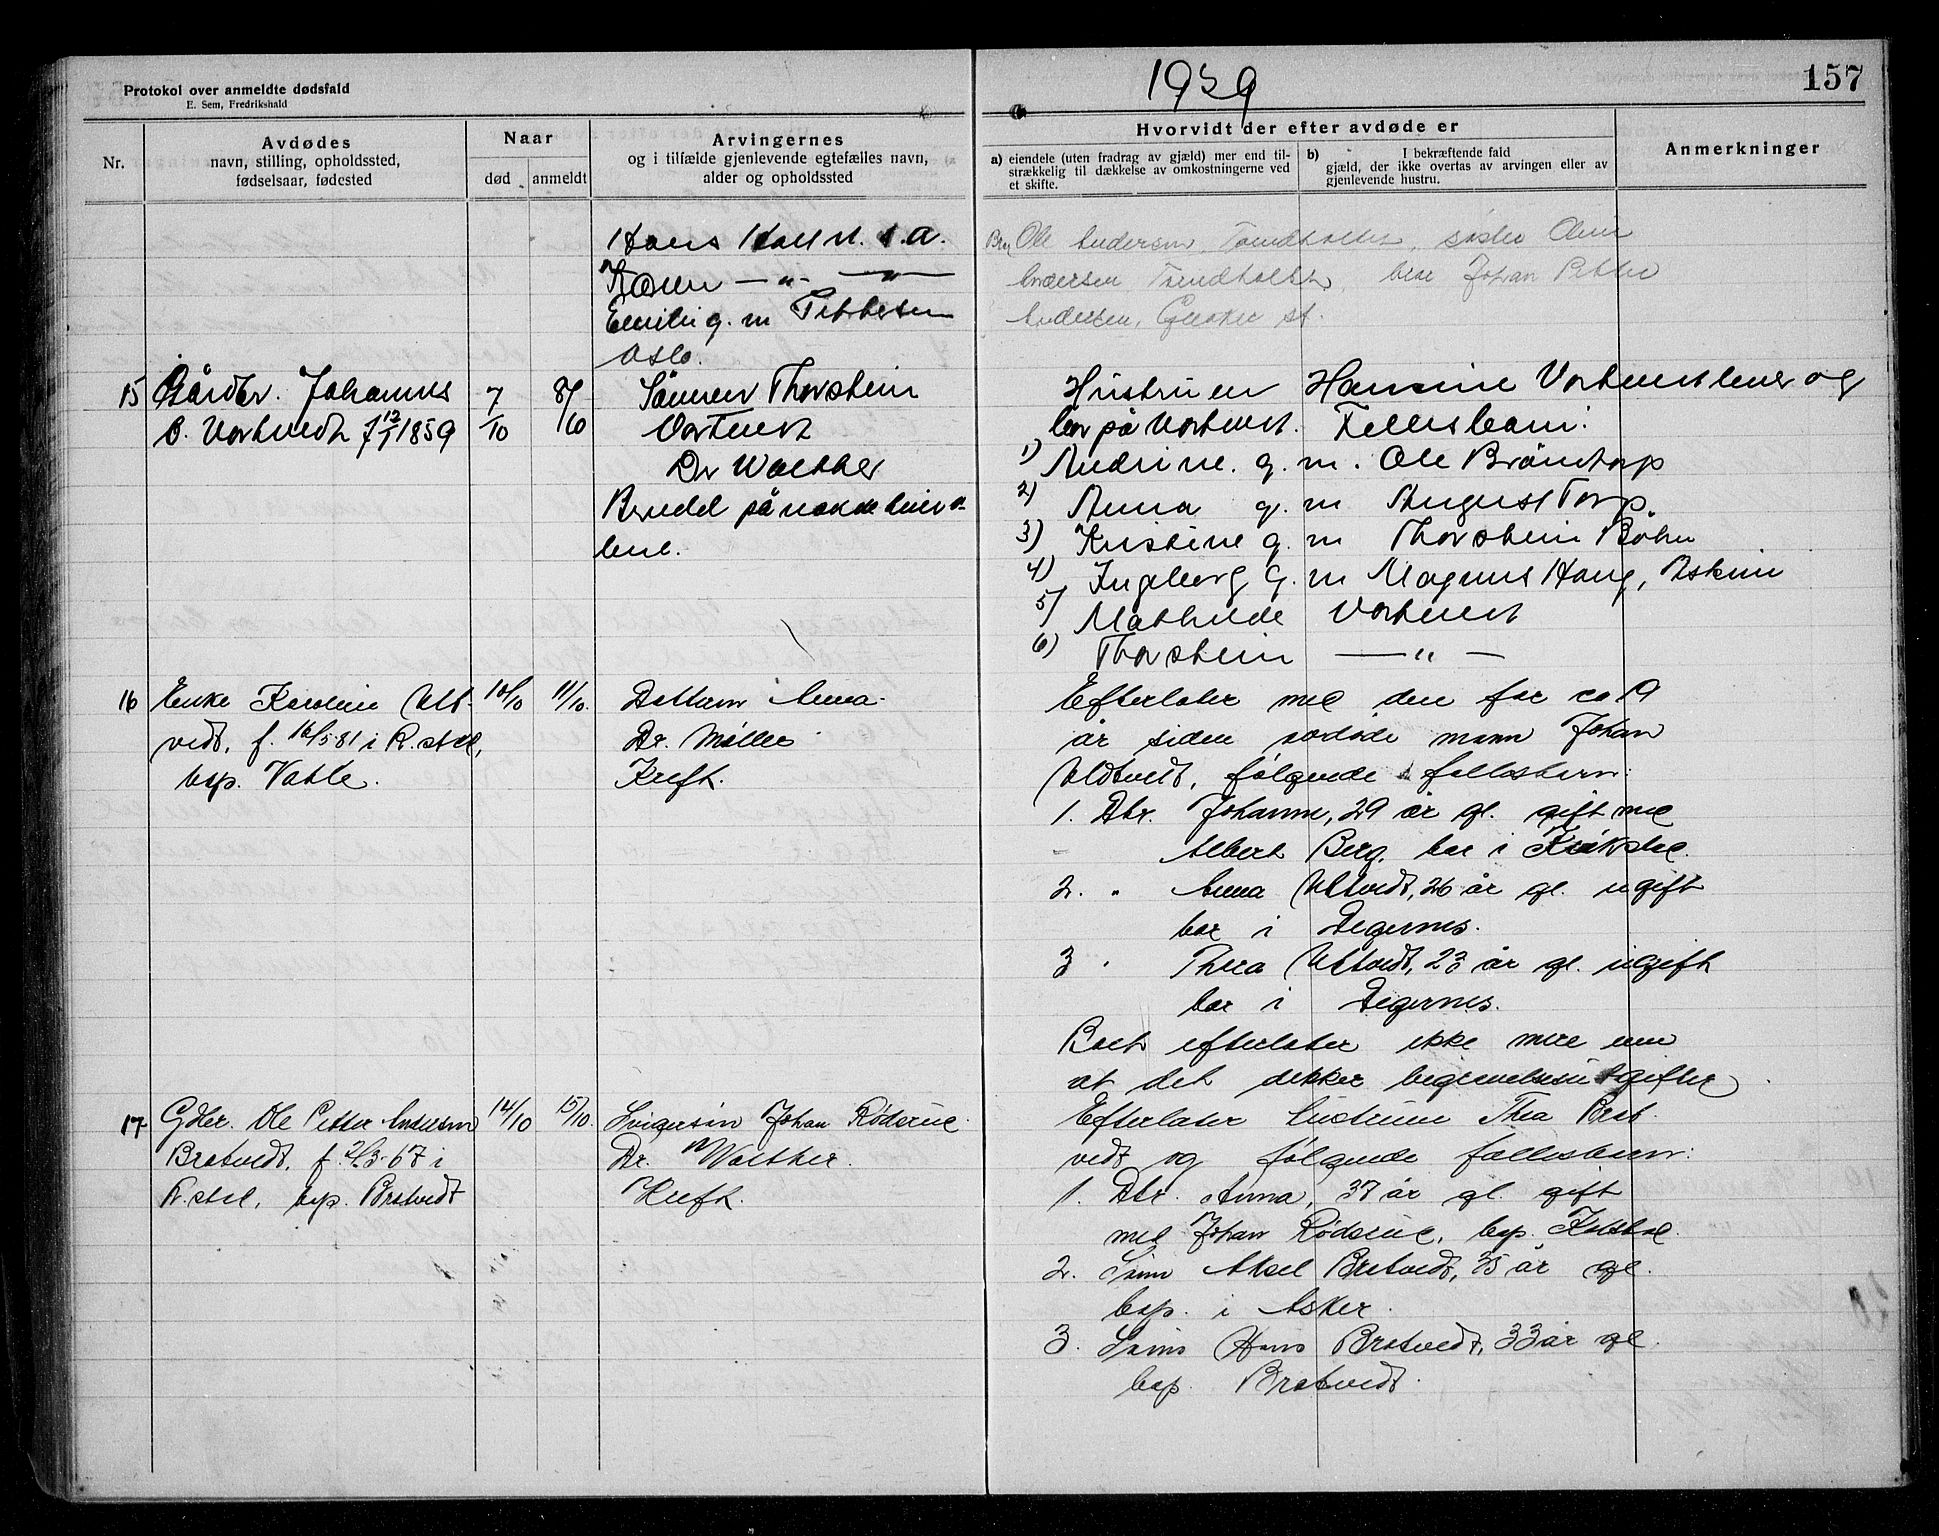 Protokol over anmeldte dødsfald
E. Sem, Fredrikshald
1939
157
Nr.
Avdødes
navn, stilling, opholdssted,
fødselsaar, fødested
Naar
død
anmeldt
Arvingernes
og i tilfælde gjenlevende egtefælles navn,
alder og opholdssted
Hvorvidt der efter avdøde er
a) eiendele (uten fradrag av gjæld) mer end til-
strækkelig til dækkelse av omkostningerne ved
et skifte.
b) I bekræftende fald
gjæld, der ikke overtas av arvingen eller av
gjenlevende hustru.
Anmerkninger
Hans
Karen — „ — „
Emilie g. m
Oslo.
Ole Andersen, søster
Andersen bror Johan Petter
Andersen, st.
15 Gårdbr. Johannes
O. Vortvedt f 12/1 1859
7/10
8/10
Sønnen Thorstein
Vortvedt
Dr Walther
Hustruen Hansine Vortvedt lever og
bor på Vortvedt. Fellesbarn:
1) Andrine. g. m. Ole Bråntorp
2) Anna g. m August Torp
3) Kristine g. m Thorstein Böhn
4) Ingeborg g. m Magnus Haug, Askim
5) Mathilde Vortvedt
6) Thorstein — „ —
16 Enke Karoline Ult-
vedt, f. 16/5 81 i R.stad,
bop. Vatle.
10/10
11/10.
Datteren Anna
Dr. Møller
Kreft.
Efterlater med den for ca 19
år siden avdøde mann Johan
Ultvedt, følgende fellesbarn:
1. Dtr. Johanne, 29 år gl. gift med
Albert Berg, bor i
2. „ Anna Ultvedt, 26 år gl. ugift
bor i Degernes.
3 „ Thea Ultvedt, 23 år gl. ugift
bor i Degernes.
Boet efterlater ikke mere enn
at det dekker begravelsesutgifter.
17 Gdbr. Ole Petter Andersen
Bratvedt, f. 2/3-67 i
R.stad, bop. Bratvedt
14/10
15/10.
Svigersøn Johan Røderud
Dr. Walther.
Kreft.
Efterlater hustruen Thea Brat-
vedt og følgende fellesbarn:
1. Dtr. Anna, 37 år gl. gift
med Johan Røderud, bop.
2. Sønn Aksel Bratvedt, 35 år gl.
bop. i Asker.
3. Sønn Hans Bratvedt, 33 år gl.
bop. Bratvedt.